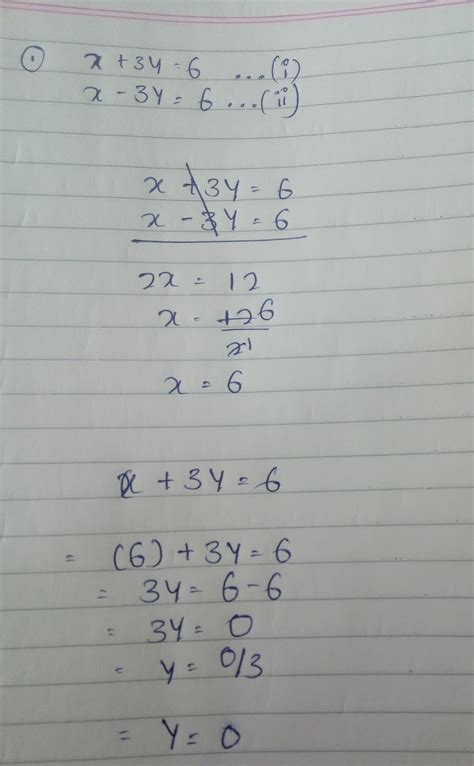 ① x + 3y = 6 ...(i)
x - 3y = 6 ...(ii)
x + 3y = 6
x - 3y = 6
2x = 12
x = 12 6
2 1
x = 6
x + 3y = 6
= (6) + 3y = 6
= 3y = 6 - 6
= 3y = 0
= y = 0/3
= y = 0